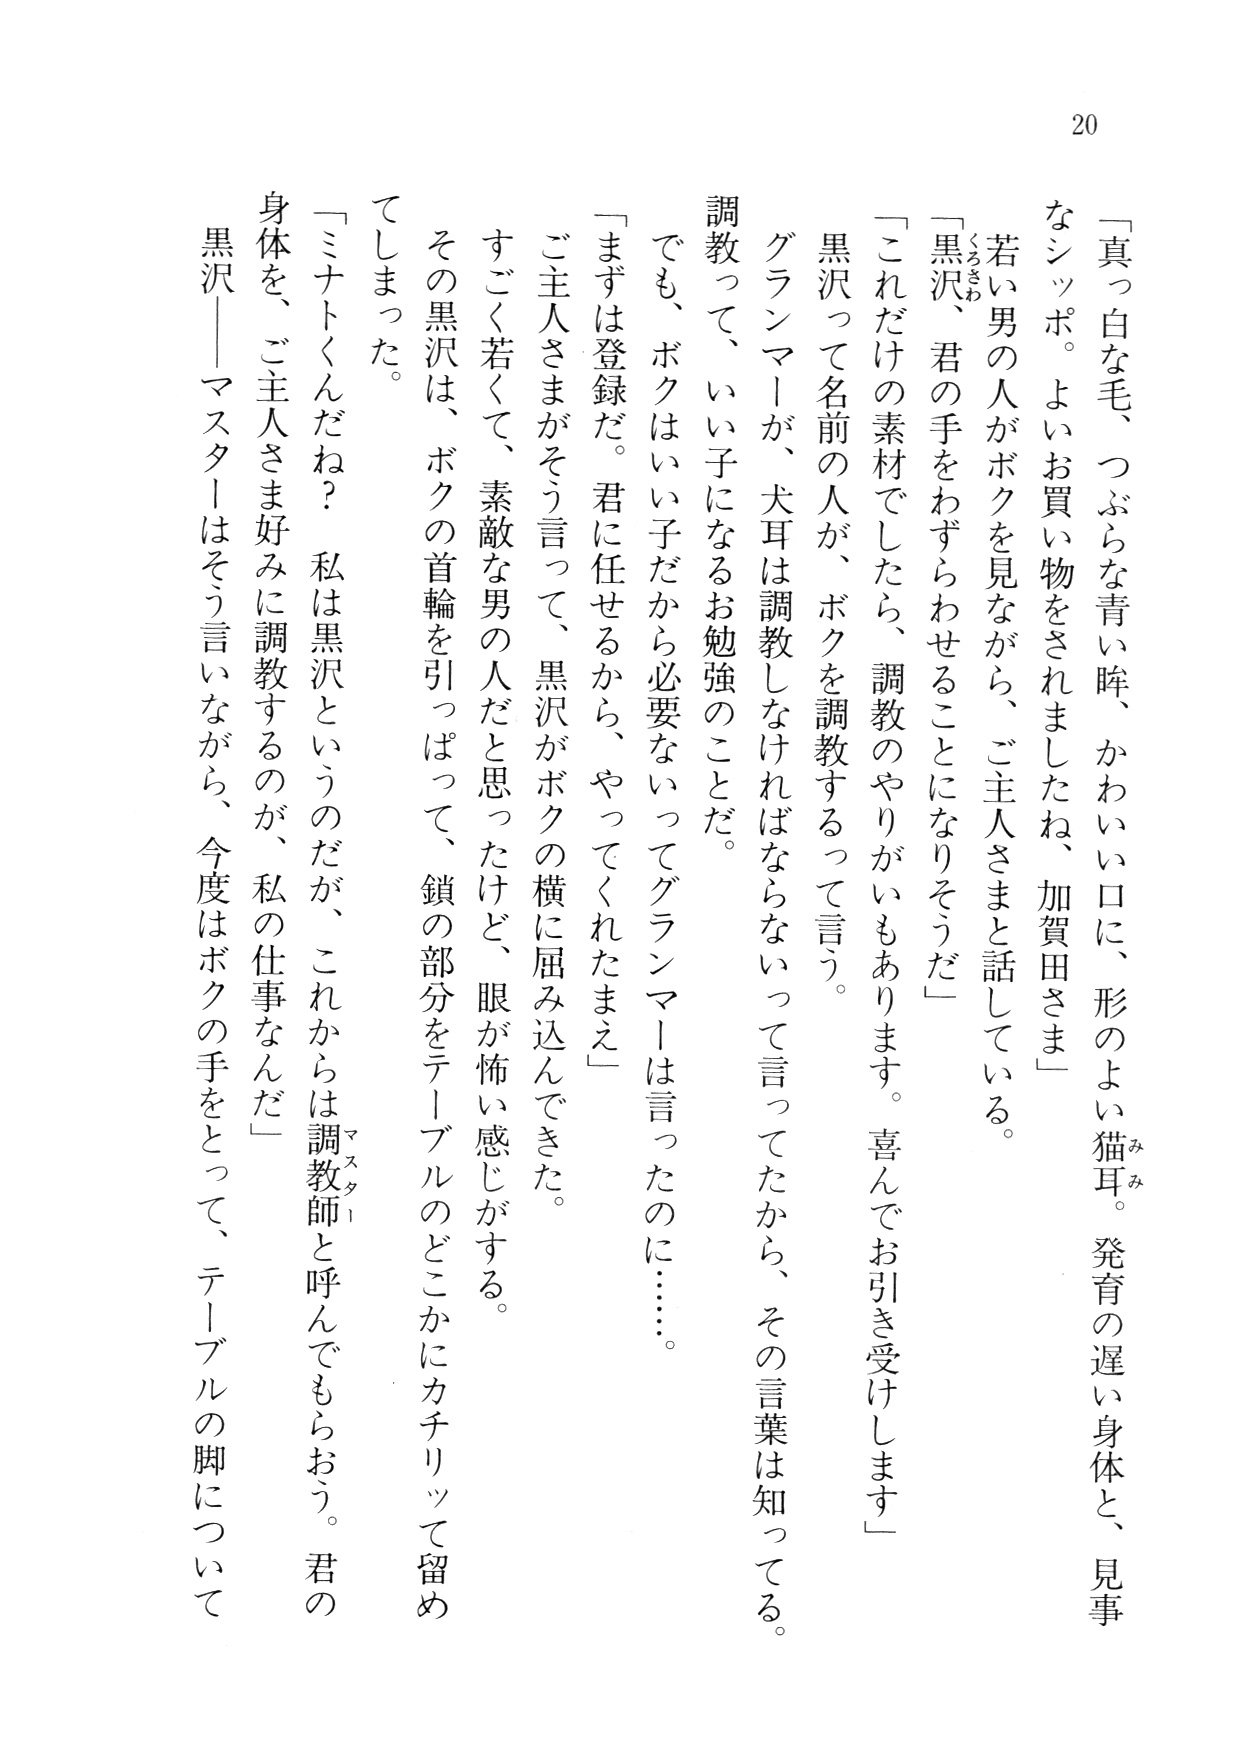 20
「真っ白な毛、つぶらな青い眸、かわいい口に、形のよい猫耳。発育の遅い身体と、見事
なシッポ。よいお買い物をされましたね、加賀田さま」
若い男の人がボクを見ながら、ご主人さまと話している。
「黒沢、君の手をわずらわせることになりそうだ」
「これだけの素材でしたら、調教のやりがいもあります。喜んでお引き受けします」
黒沢って名前の人が、ボクを調教するって言う。
グランマーが、犬耳は調教しなければならないって言ってたから、その言葉は知ってる。
調教って、いい子になるお勉強のことだ。
でも、ボクはいい子だから必要ないってグランマーは言ったのに……。
「まずは登録だ。君に任せるから、やってくれたまえ」
ご主人さまがそう言って、黒沢がボクの横に屈み込んできた。
すごく若くて、素敵な男の人だと思ったけど、眼が怖い感じがする。
その黒沢は、ボクの首輪を引っぱって、鎖の部分をテーブルのどこかにカチリッて留め
てしまった。
「ミナトくんだね？　私は黒沢というのだが、これからは調教師と呼んでもらおう。君の
身体を、ご主人さま好みに調教するのが、私の仕事なんだ」
黒沢――マスターはそう言いながら、今度はボクの手をとって、テーブルの脚について
みみ
くろさわ
マスター